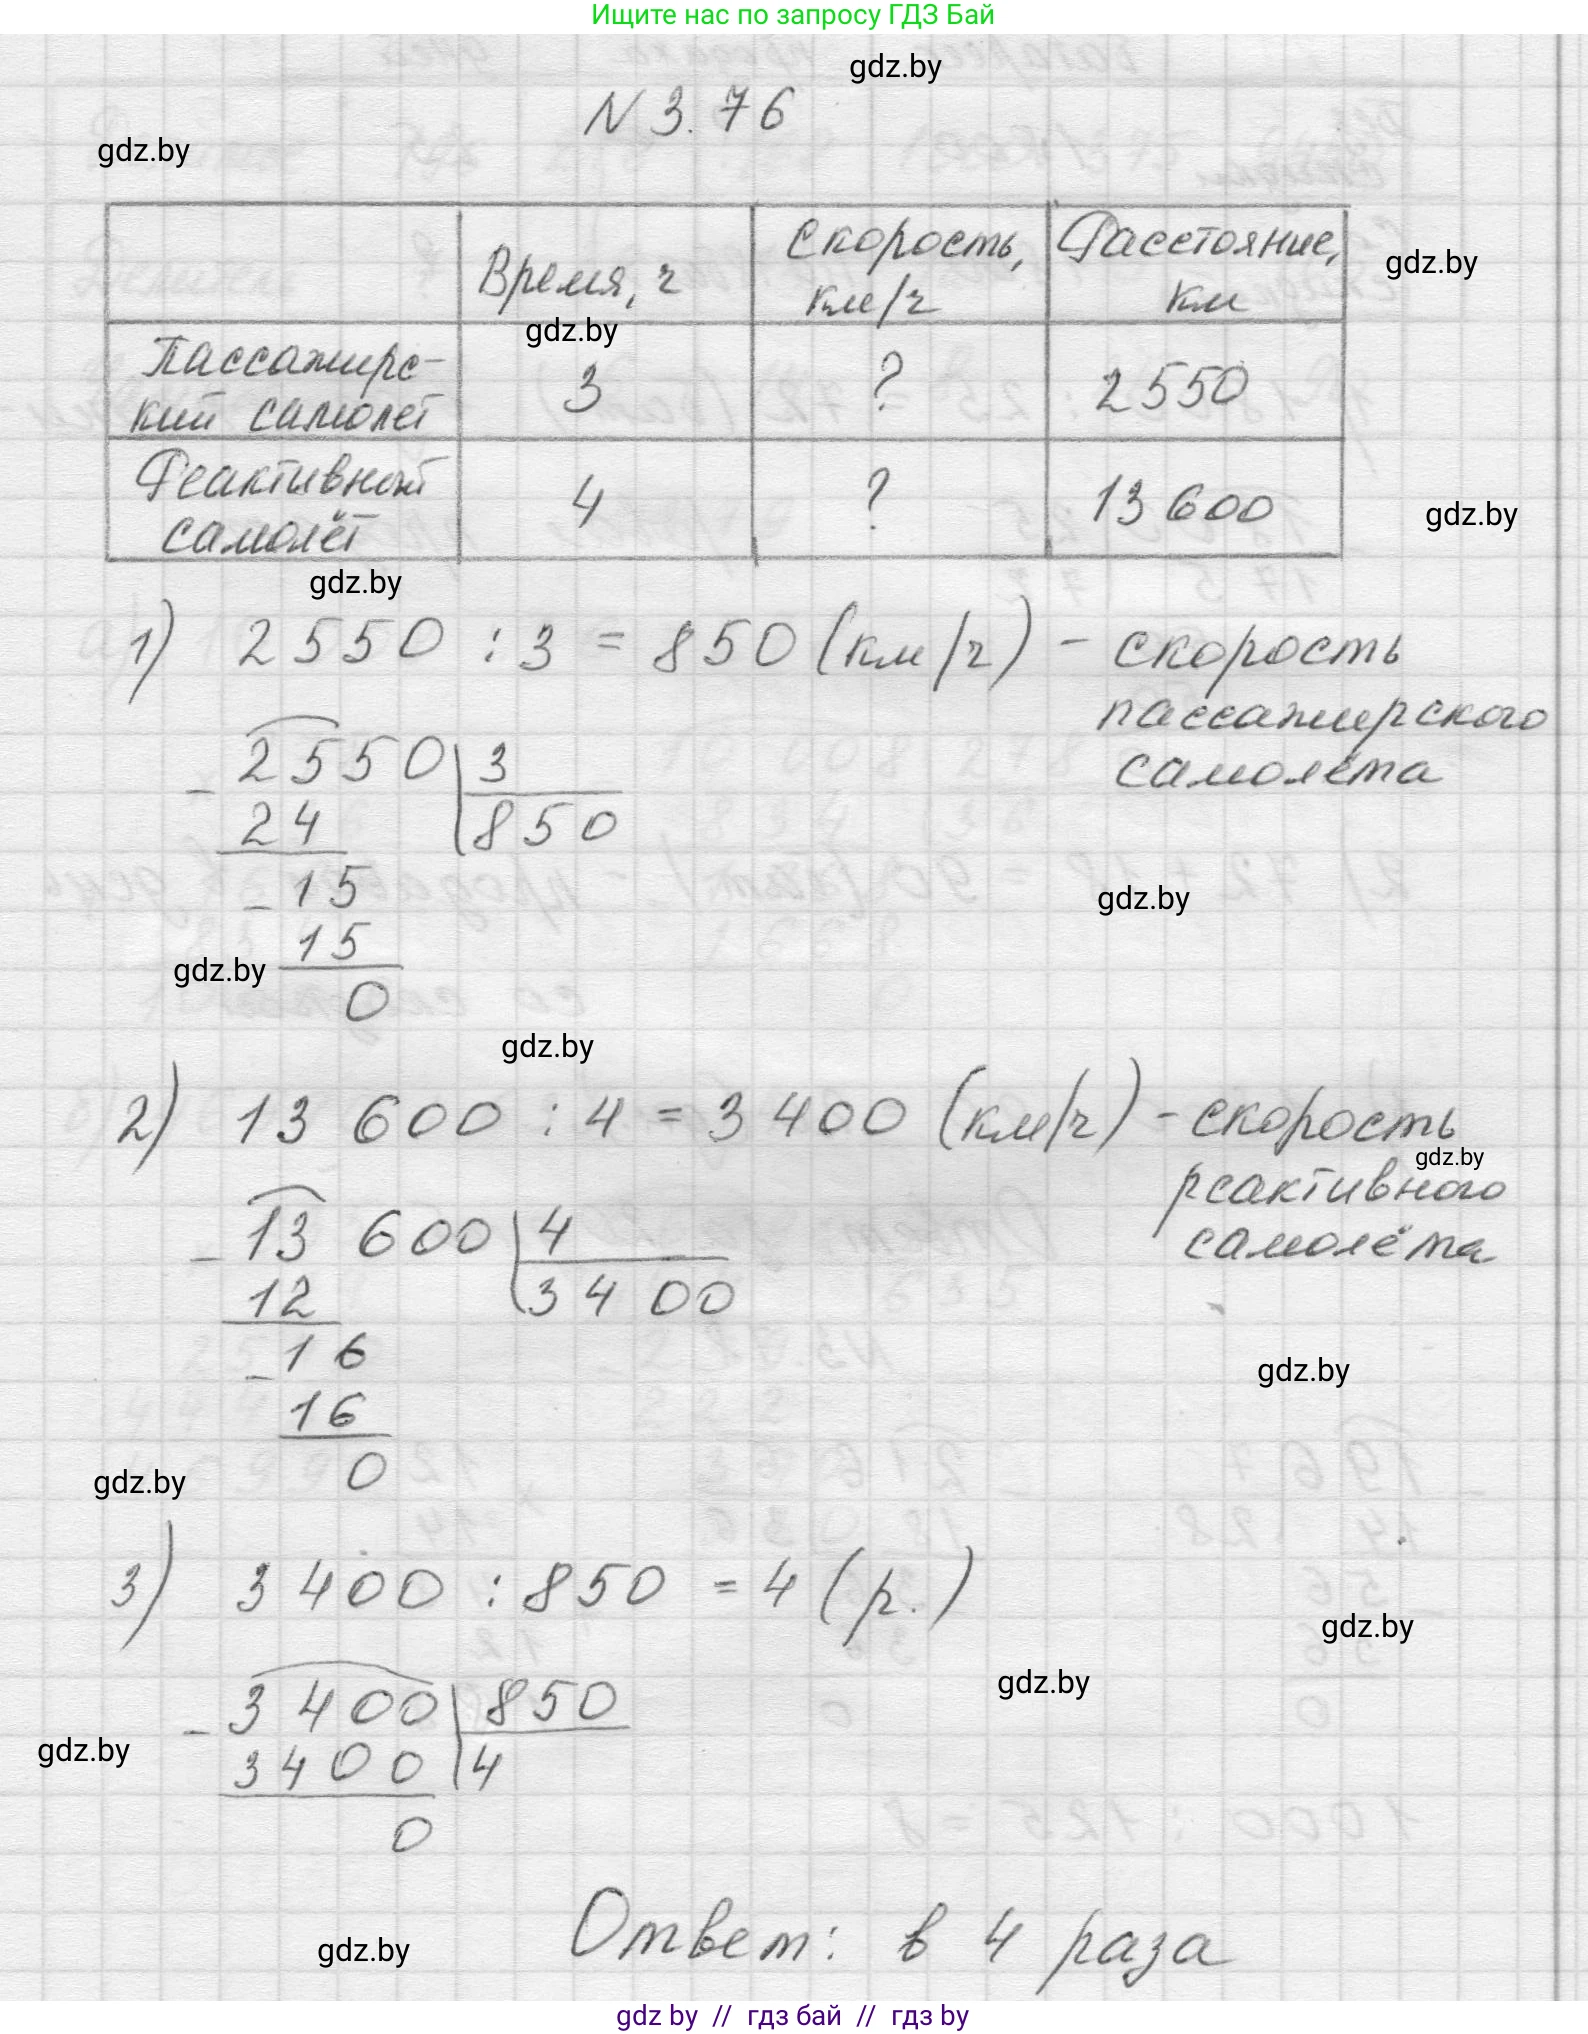 Ищите нас по запросу ГДЗ Бай
gdz.by
N 3.76
gdz.by
Время, ч
Скорость, км/ч
Расстояние, км
gdz.by
gdz.by
Пассажирс-
кий самолет
3
?
2550
Реактивный
самолёт
4
?
13 600
gdz.by
gdz.by
1) 2550 : 3 = 850 (км/ч) - скорость
пассажирского
самолёта
- 2550 3
24 850
- 15
15
0
gdz.by
gdz.by
gdz.by
2) 13 600 : 4 = 3 400 (км/ч) - скорость
gdz.by
реактивного
самолёта
- 13 600 4
12 3 400
- 16
16
0
gdz.by
gdz.by
3) 3 400 : 850 = 4 (р.)
gdz.by
gdz.by
- 3 400 850
3400 4
0
gdz.by
Ответ: в 4 раза
gdz.by
gdz by // гдз бай // гдз by